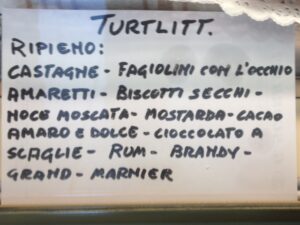 TURTLITT.
RIPIENO:
CASTAGNE - FAGIOLINI CON L'OCCHIO
AMARETTI - BISCOTTI SECCHI -
NOCE MOSCATA - MOSTARDA - CACAO
AMARO E DOLCE - CIOCCOLATO A
SCAGLIE - RUM - BRANDY -
GRAND - MARNIER